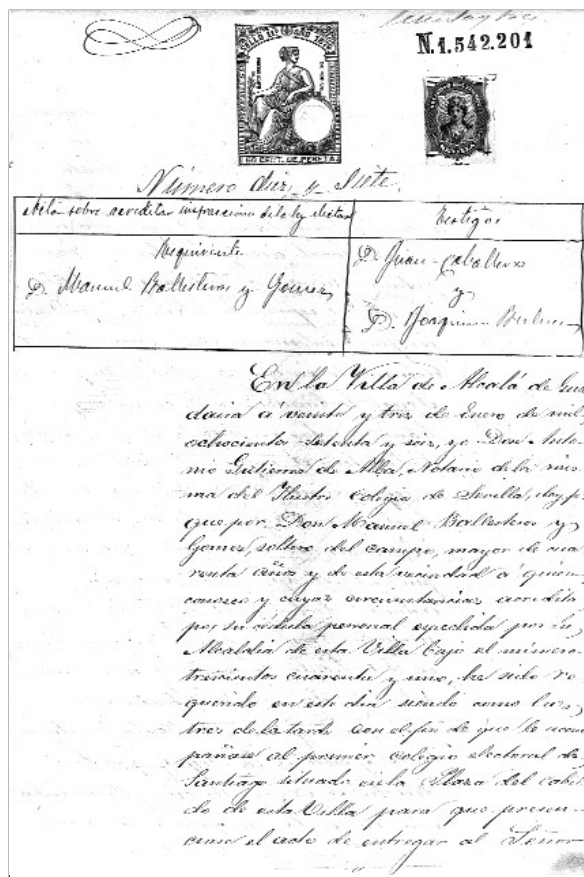 N.1.542.201
50 CENT. DE PESETA
Número diez y Siete.
Acta sobre acreditar infracciones de la ley electoral
Testigos
Requirente
D. Manuel Ballesteros y Gomez
D. Juan Caballero
y
D. Joaquin
En la Villa de Alcalá de Gua
daira á veinte y tres de Enero de mil
ochocientos setenta y seis, yo Don Anto
nio Gutierrez de Alba, Notario de la mis
ma del Ilustre Colegio de Sevilla, doy fe
que por Don Manuel Ballesteros y
Gomez, soltero del campo, mayor de cua
renta años y de esta vecindad á quien
conozco y cuyas circunstancias acredita
por su cédula personal espedida por la
Alcaldia de esta Villa bajo el número
trescientos cuarenta y uno, he sido re
querido en este dia siendo como las
tres de la tarde con el fin de que le acom
pañase al primer colegio electoral de
Santiago situado en la Plaza del cabil
do de esta Villa para que presen
ciase el acto de entregar al Señor